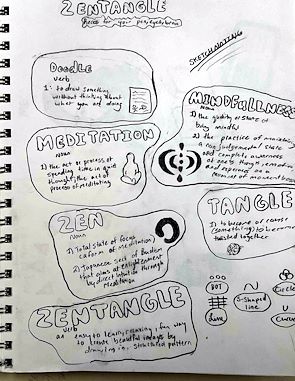 ZENTANGLE
SKETCHNOTING
Doodle
verb
1: to draw something
without thinking about
what you are doing
MINDFULLNESS
noun
1) the quality or state of
being mindful
2) the practice of maintaining
a non judgemental state
and complete awareness
of one's thoughts, emotions
MEDITATION
noun
1) the act or process of
spending time in quiet
thought; the act of
process of meditating
ZEN
noun
1) Total state of focus
(a form of meditation)
2) Japanese sect of
that aims at enlightenment
by direct intuition through
meditation
TANGLE
1) to become or cause
(something) to become
twisted together
DOT
S-Shaped
line
Circle
Line
Curve
ZENTANGLE
verb
an easy to learn, relaxing, fun way
to create beautiful images by
drawing structured pattern